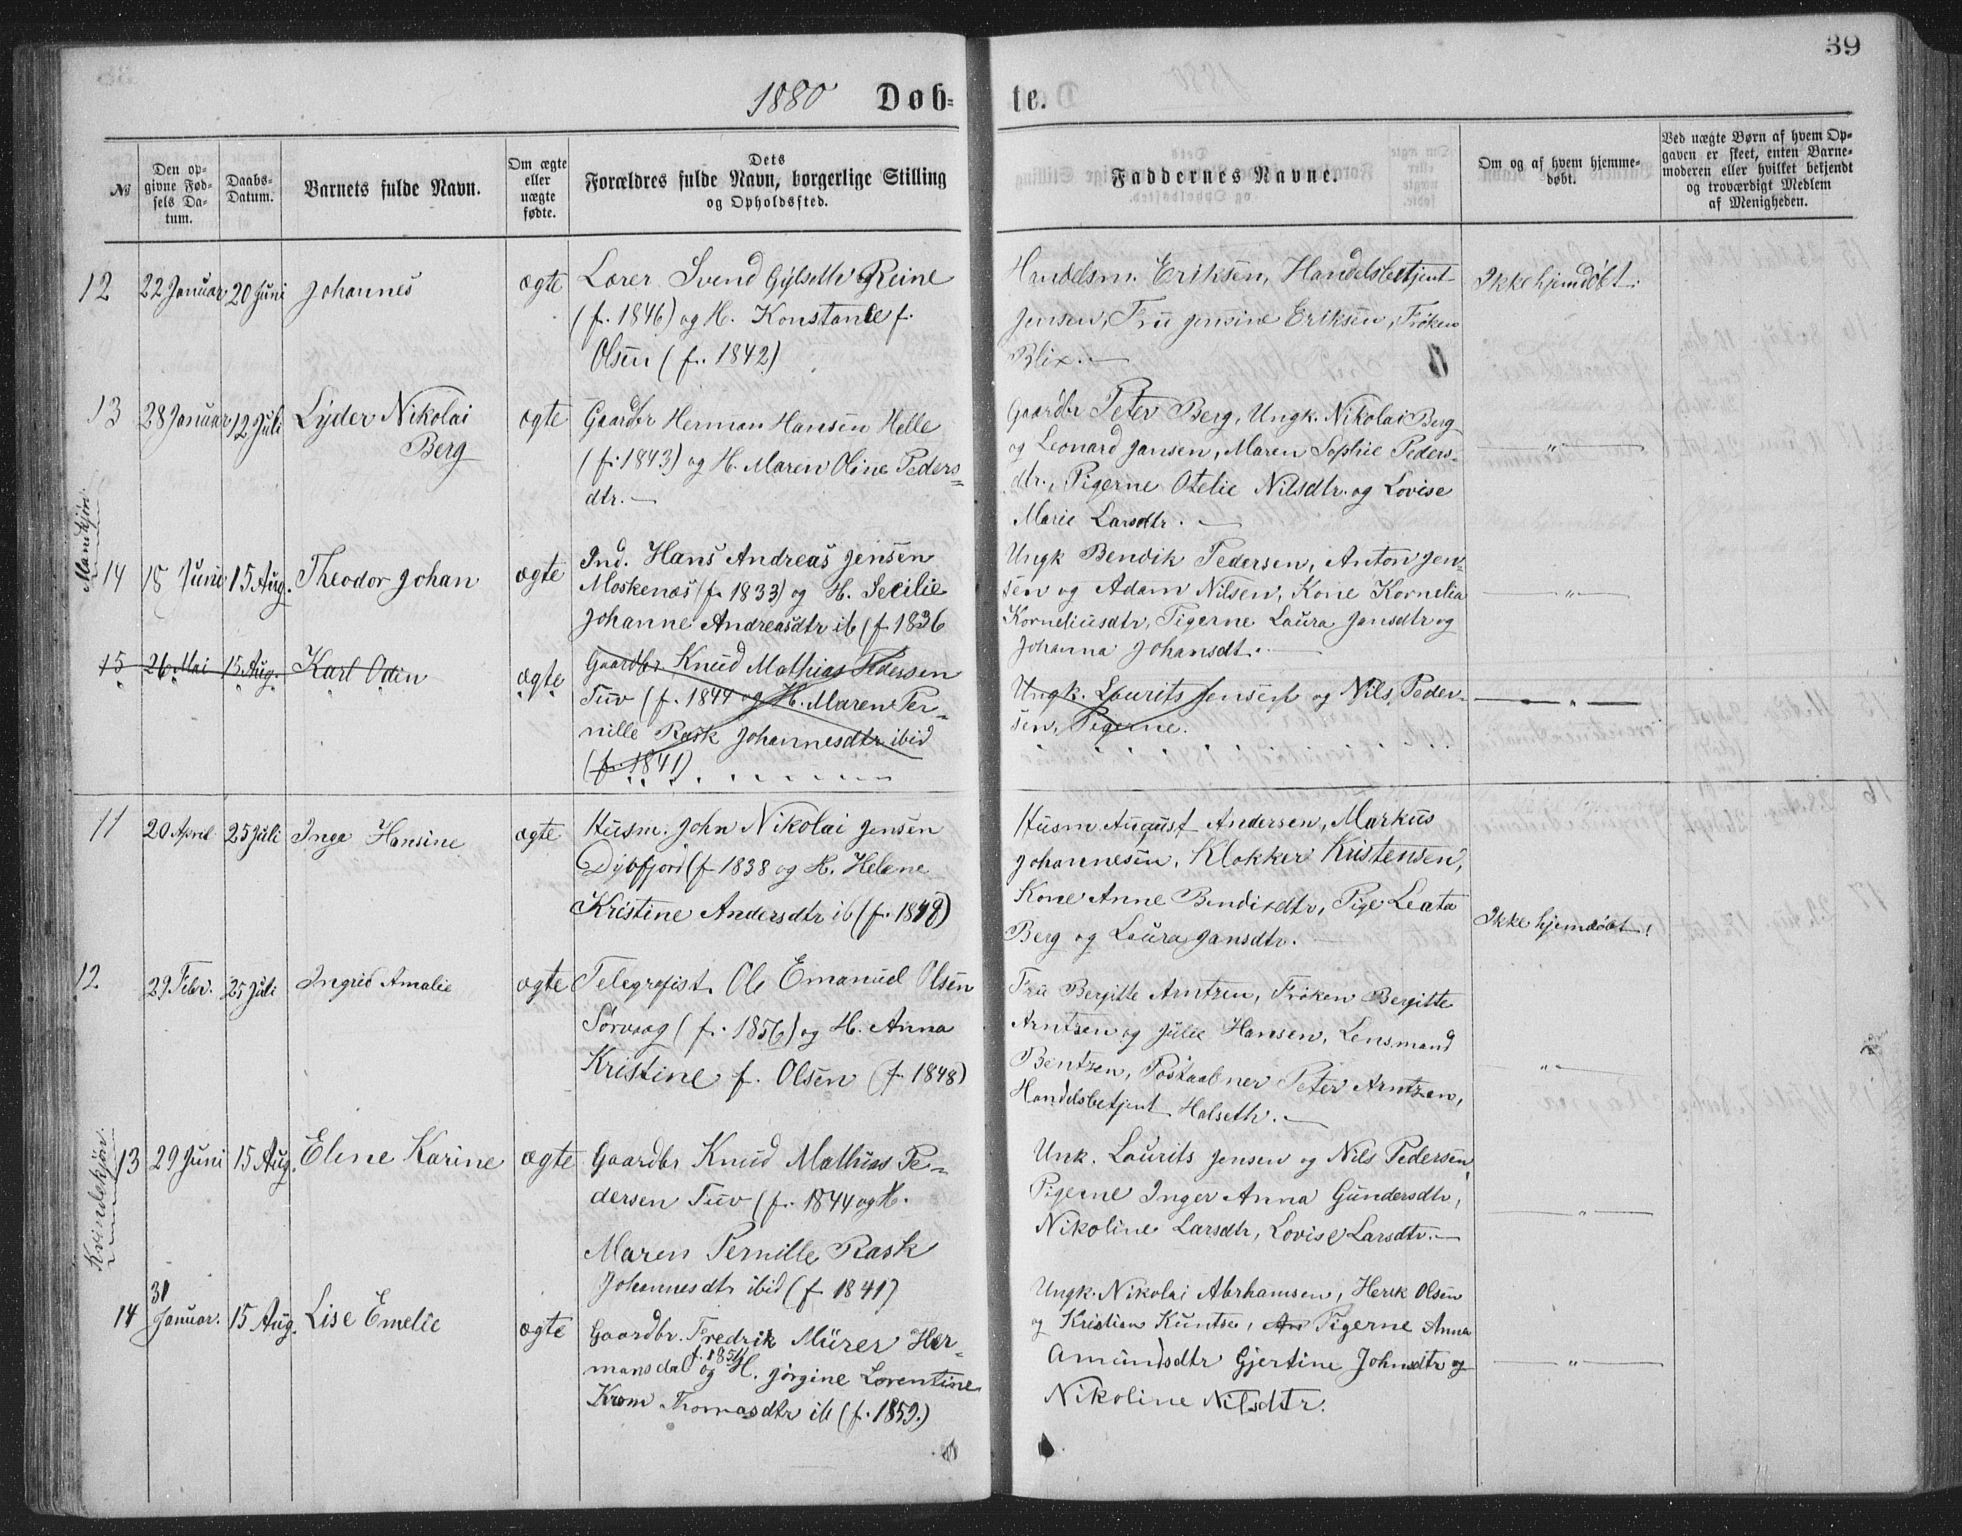 39
1880 Døb- te.
№
Den op-
givne Fød-
sels Da-
tum.
Daabs-
Datum.
Barnets fulde Navn.
Om ægte
eller
uægte
fødte.
Dets
Forældres fulde Navn, borgerlige Stilling
og Opholdssted.
Faddernes Navne.
Om og af hvem hjemme-
døbt.
Ved uægte Børn af hvem Op-
gaven er skeet, enten Barne-
moderen eller hvilket bekjendt
og troværdigt Medlem
af Menigheden.
Mandkjøn.
12 22 Januar 20 Juni Johannes ægte Lærer Svend Gylseth Reine
(f. 1846) og H. Konstance f.
Olsen (f. 1842)
Handelsm. Eriksen, Handelsbetjent
Jensen, Fru Jensine Eriksen, Frøken
Blix. —
Ikke hjemdøbt.
13 28 Januar 12 Juli Lyder Nikolai
Berg
ægte Gaardbr Herman Hansen Helle
(f. 1843) og H. Maren Oline Peders-
dtr. —
Gaardbr Peter Berg, Ungk. Nikolai Berg
og Leonard Jansen, Maren Sophie Peders-
dtr., Pigerne Otelie Nilsdtr. og Lovise
Marie Larsdtr. —
— " —
14 18 Juni 15 Aug. Theodor Johan ægte Ind. Hans Andreas Jensen
Moskenæs (f. 1833) og H. Secilie
Johanne Andreasdtr ib (f. 1836
Ungk Bendik Pedersen, Anton Jen-
sen og Adam Nilsen, Kone Kornelia
Korneliusdtr, Pigerne Laura Jansdtr og
Johanna Johansdt. —
— " —
15 26 Mai 15 Aug. Karl Odin ægte Gaardbr Knud Mathias Pedersen
Tuv (f. 1844 og H. Maren Per-
nille Rask Johannesdtr ibid
(f. 1841)
Ungk. Laurits Jensen og Nils Peder-
sen, Pigerne.
— " —
Kvindekjøn.
11 20 April 25 Juli Inga Hansine ægte Husm. John Nikolai Jensen
Dybfjord (f. 1838 og H. Helene
Kristine Andersdtr ib (f. 1848)
Husm August Andersen, Markus
Johannesen, Klokker Kristensen,
Kone Anne Bendixdtr, Pige Leata
Berg og Laura Jansdtr.
Ikke hjemdøbt!
12 29 Febr. 25 Juli Ingrid Amalie ægte Telegrafist Ole Emanuel Olsen
Sørvaag (f. 1856) og H. Anna
Kristine f. Olsen (f. 1848)
Fru Bergitte Arntzen, Frøken Bergitte
Arntzen og Julie Hansen, Lensmand
Bentzen, Postaabner Peter Arntzen,
Handelsbetjent Halseth. —
— " —
13 29 Juni 15 Aug. Eline Karine ægte Gaardbr Knud Mathias Pe-
dersen Tuv (f. 1844 og H.
Maren Pernille Rask
Johannesdtr ibid (f 1841)
Unk. Laurits Jensen og Nils Pedersen,
Pigerne Inger Anna Gundersdtr,
Nikoline Larsdtr, Lovise Larsdtr. —
— " —
14 31
Januar. 15 Aug. Lise Emelie ægte Gaardbr. Fredrik Mürer Her-
mansdal f. 1854 og H. Jørgine Lorentine
Krom Thomasdtr ib (f. 1859.)
Ungk. Nikolai Abrhamsen, Herik Olsen
og Kristian Kuntsen, An Pigerne Anna
Amundsdtr Gjertine Johnsdtr og
Nikoline Nilsdtr.
— " —